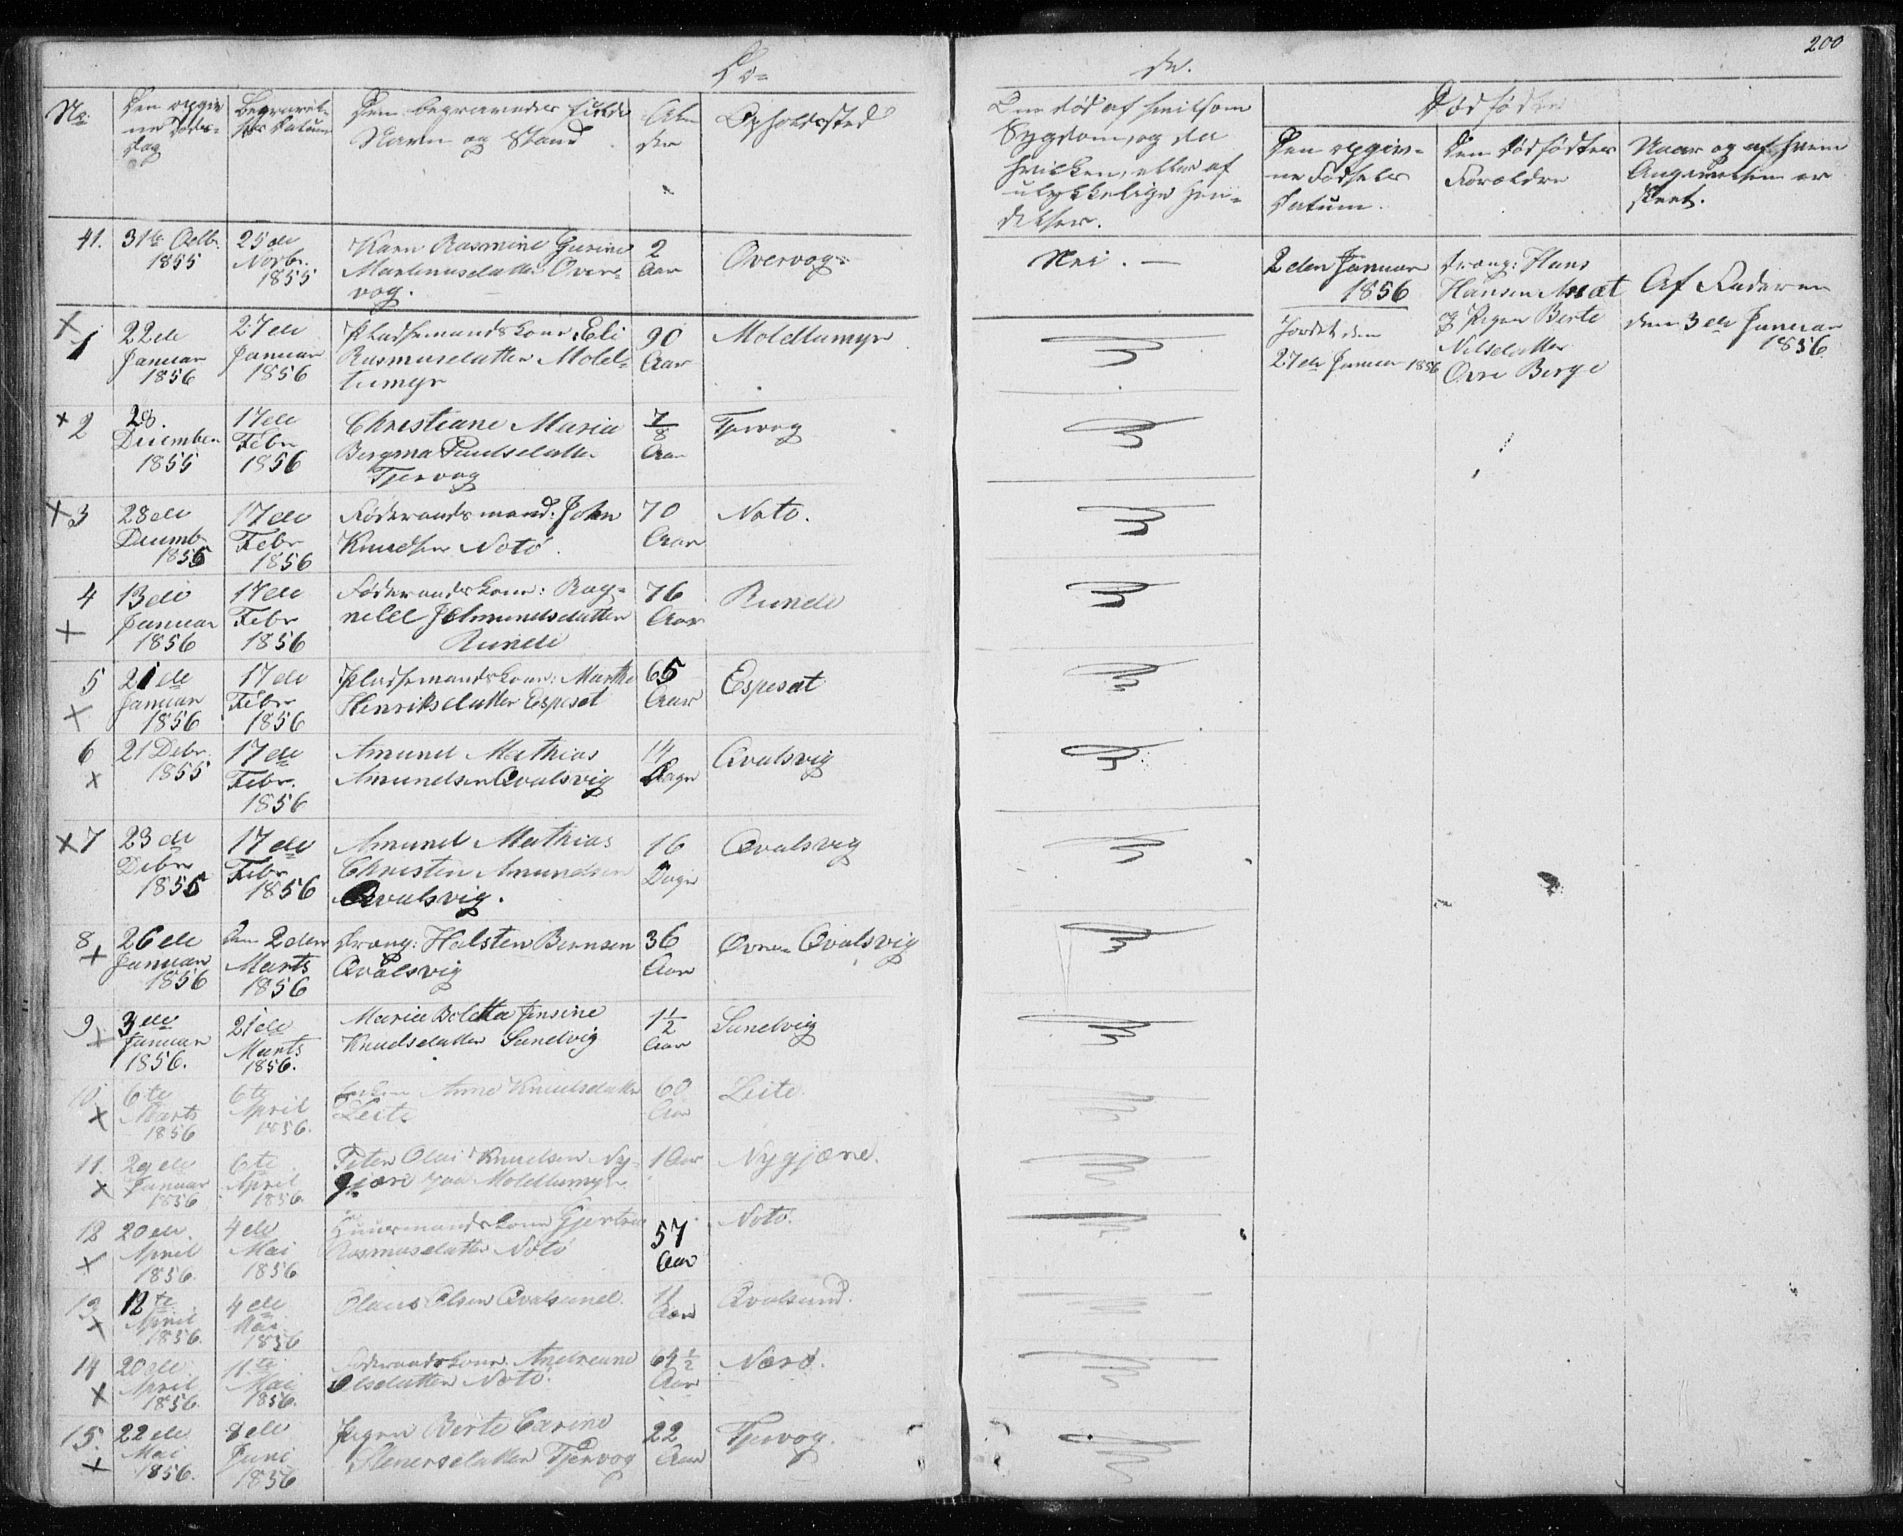 200
Dø=
de.
No
Den opgiv
ne Døds-
dag
Begravel-
ses Datum
Den begravedes fulde
Navn og Stand
Al-
der
Opholdssted
Om død af hvilsom
Sygdom, og da
hvilken, eller af
ulykkelige Hæn-
delser.
Dødfødte
Den opgiv-
ne Fødsels
Datum.
Den Dødfødtes
Forældre
Naar og af hvem
Angivelsen er
skeet.
41. 31te Octbr. 1855
25de Novbr. 1855
Karn Rasmine Gurine
Martinusdatter Over-
vog.
2 Aar
Overvog
Nei. —
2den Januar
1856
Jordet den
27de Januar 1856
Dreng: Hans
Hansen
& Pigen Berte
Nilsdatter
Øvre Berge
Af Faderen
den 3de Januar
1856
1 22de Januar 1856
27de Januar 1856
Pladsemandskone: Eli
Rasmusdatter Mold-
tumyr
90 Aar
Moldtumyr
2 28. December 1855
17de Febr 1856
Christiane Maria
Bergma Paulsdatter
Tjervog
7/8 Aar
Tjervog
3 28de Decemb 1855
17de Febr 1856
Føderaadsmand: John
Knudsen Notø.
70 Aar
Notø.
4 13de Januar 1856
17de Febr 1856
Føderaadskone: Rag-
nild Jetmundsdatter
Runde
76 Aar
Runde
5 21de Januar 1856
17de Febr 1856
Pladsemandskone: Marthe
Henriksdatter Espeset
65 Aar
Espesæt
6 21 Debr. 1855
17de Febr. 1856
Amund Mathias
Amundsen Qvalsvig
14 Dage
Qvalsvig
7 23de Debr 1855
17de Febr 1856
Amund Mathias
Christen Amundsen
Qvalsvig.
16 Dage
Qvalsvig
8 26de Januar 1856
Den 2den Marts 1856
Dreng: Halsten Berntsen
Qvalsvig
36 Aar
Øvre- Qvalsvig
9 3de Januar 1856.
21de Marts 1856.
Maria Boletta Jensine
Knudsdatter Sandvig
1½ Aar
Sandvig
10 6te Marts 1856
6te April 1856.
Anne Knudsdatter
Leite
60 Aar
Leite
11. 29de Januar 1856
6te April 1856
Peter Olai Knudsen Ny-
gjære paa Moldtumyr
1 Aar
Nygjære.
12 20de April 1856.
4de Mai 1856
Huusmandskone Gjertrue
Rasmusdatter Notø
57 Aar
Notø.
13 12te April 1856.
4de Mai 1856
Olaus Olsen Qvalsund.
11 Aar
Qvalsund.
14 20de April 1856.
11te Mai 1856.
Føderaadskone Andreane
Olsdatter Notø.
64½ Aar
Nærø.
15. 22de Mai 1856.
8de Juni 1856
Pigen Berte Carine
Stenersdatter Tjervog
22 Aar
Tjervog.